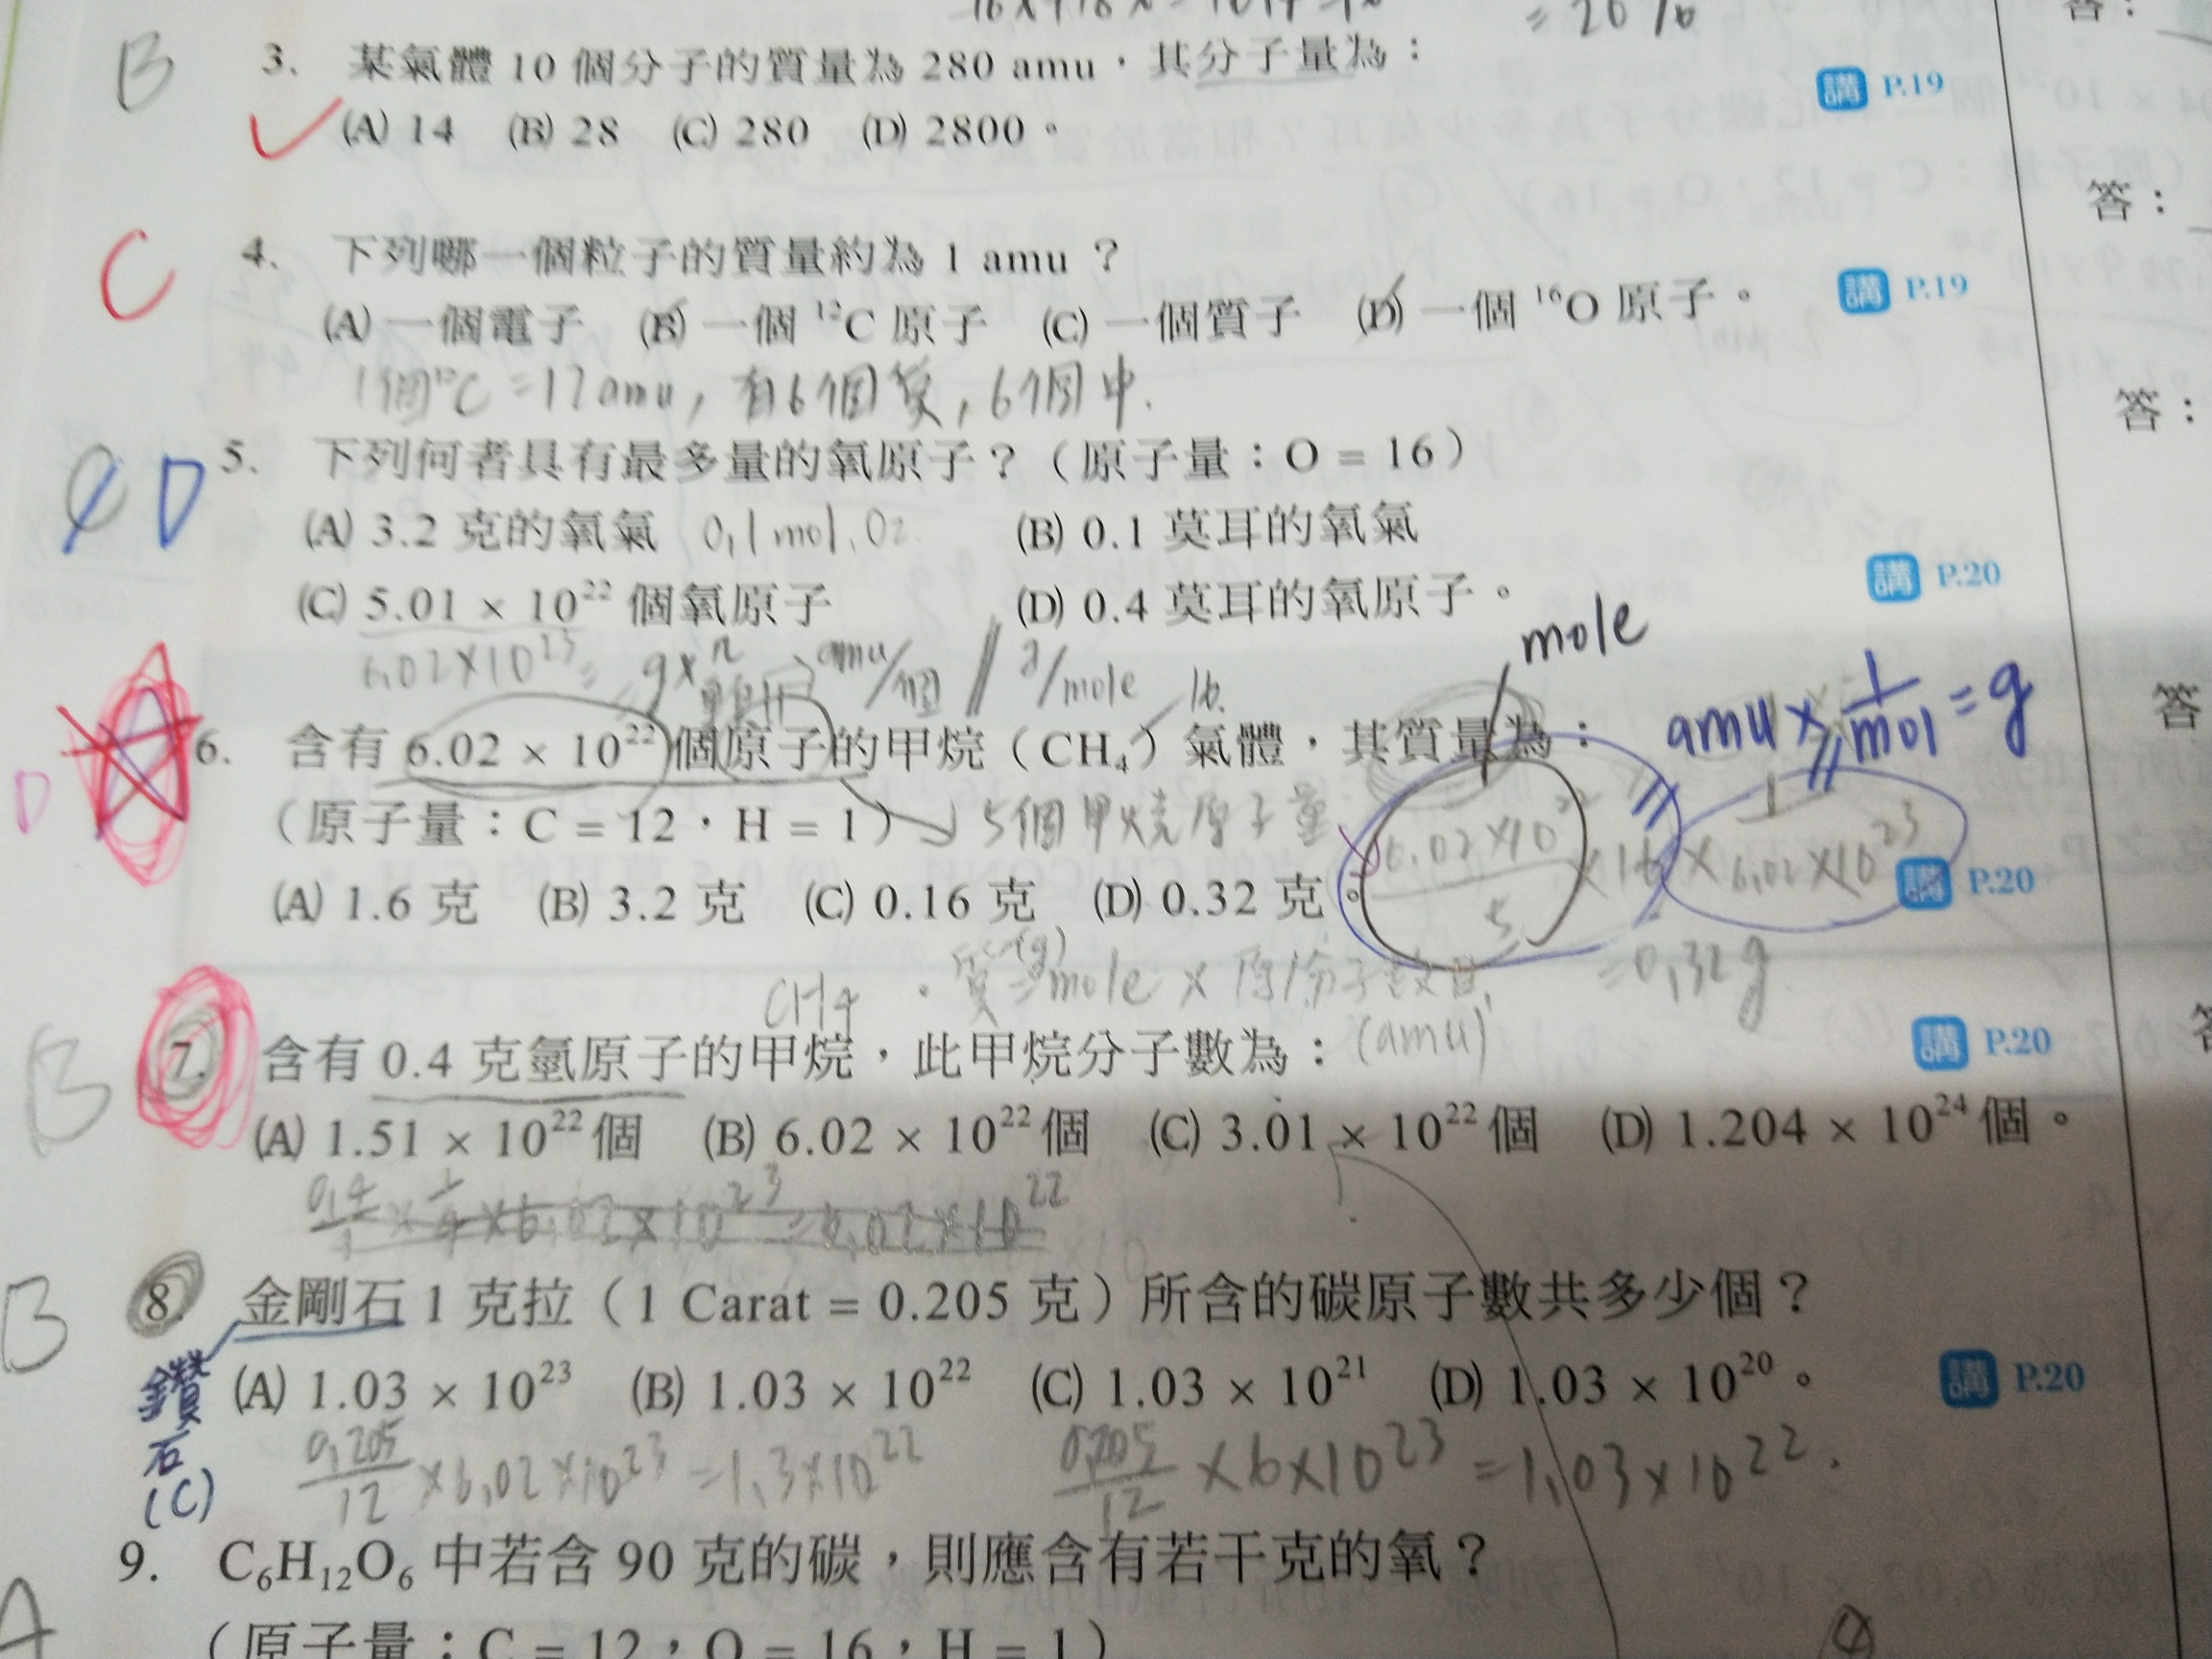 = 20%
答：
B
3. 某氣體 10 個分子的質量為 280 amu，其分子量為：
講 P.19
(A) 14 (B) 28 (C) 280 (D) 2800。
答：
C
4. 下列哪一個粒子的質量約為 1 amu ？
(A) 一個電子 (B) 一個 ¹²C 原子 (C) 一個質子 (D) 一個 ¹⁶O 原子。
講 P.19
1個¹²C = 12amu, 有6個質, 6個中.
答：
C D
5. 下列何者具有最多量的氧原子？（原子量：O = 16）
(A) 3.2 克的氧氣 0.1 mol. O₂ (B) 0.1 莫耳的氧氣
(C) 5.01 × 10²² 個氧原子 (D) 0.4 莫耳的氧原子。
講 P.20
6.02×10²³ amu/個 g/mole 16.
mole
amu × 1/mol = g
答
D
6. 含有 6.02 × 10²² 個原子的甲烷（CH₄）氣體，其質量為：
（原子量：C = 12，H = 1） 5個甲烷原子量
(A) 1.6 克 (B) 3.2 克 (C) 0.16 克 (D) 0.32 克。
6.02×10²²/5 × 16 × 1/6.02×10²³
講 P.20
= 0.32g
CH4 · 質(g) = mole × 原/分子數量 (amu)
B
7. 含有 0.4 克氫原子的甲烷，此甲烷分子數為：
講 P.20
(A) 1.51 × 10²² 個 (B) 6.02 × 10²² 個 (C) 3.01 × 10²² 個 (D) 1.204 × 10²⁴ 個。
0.4/1 × 1/4 × 6.02×10²³ = 6.02×10²²
B
8. 金剛石 1 克拉（1 Carat = 0.205 克）所含的碳原子數共多少個？
鑽石(C)
(A) 1.03 × 10²³ (B) 1.03 × 10²² (C) 1.03 × 10²¹ (D) 1.03 × 10²⁰。
講 P.20
0.205/12 × 6.02×10²³ = 1.3×10²² 0.205/12 × 6×10²³ = 1.03×10²².
A
9. C₆H₁₂O₆ 中若含 90 克的碳，則應含有若干克的氧？
（原子量：C = 12，O = 16，H = 1）